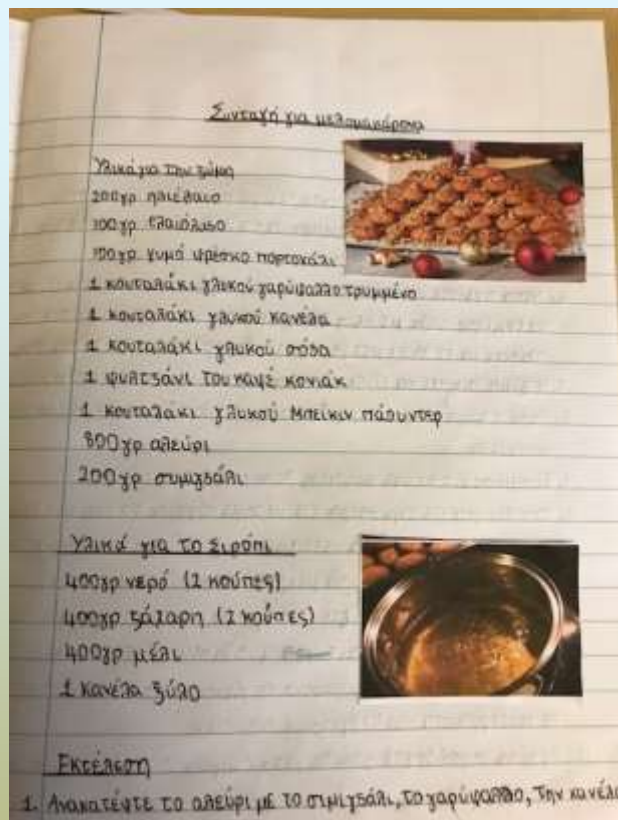 Συνταγή για μελομακάρονα
Υλικά για την ζύμη
200γρ ηλιέλαιο
100γρ ελαιόλαδο
100γρ χυμό φρέσκο πορτοκάλι
1 κουταλάκι γλυκού γαρύφαλλο τριμμένο
1 κουταλάκι γλυκού κανέλα
1 κουταλάκι γλυκού σόδα
1 φυλτζάνι του καφέ κονιάκ
1 κουταλάκι γλυκού μπέικιν πάουντερ
800γρ αλεύρι
200γρ σιμιγδάλι
Υλικά για το σιρόπι
400γρ νερό (2 κούπες)
400γρ ζάχαρη (2 κούπες)
400γρ μέλι
1 κανέλα ξύλο
Εκτέλεση
1. Ανακατέψτε το αλεύρι με το σιμιγδάλι, το γαρύφαλλο, την κανέλα